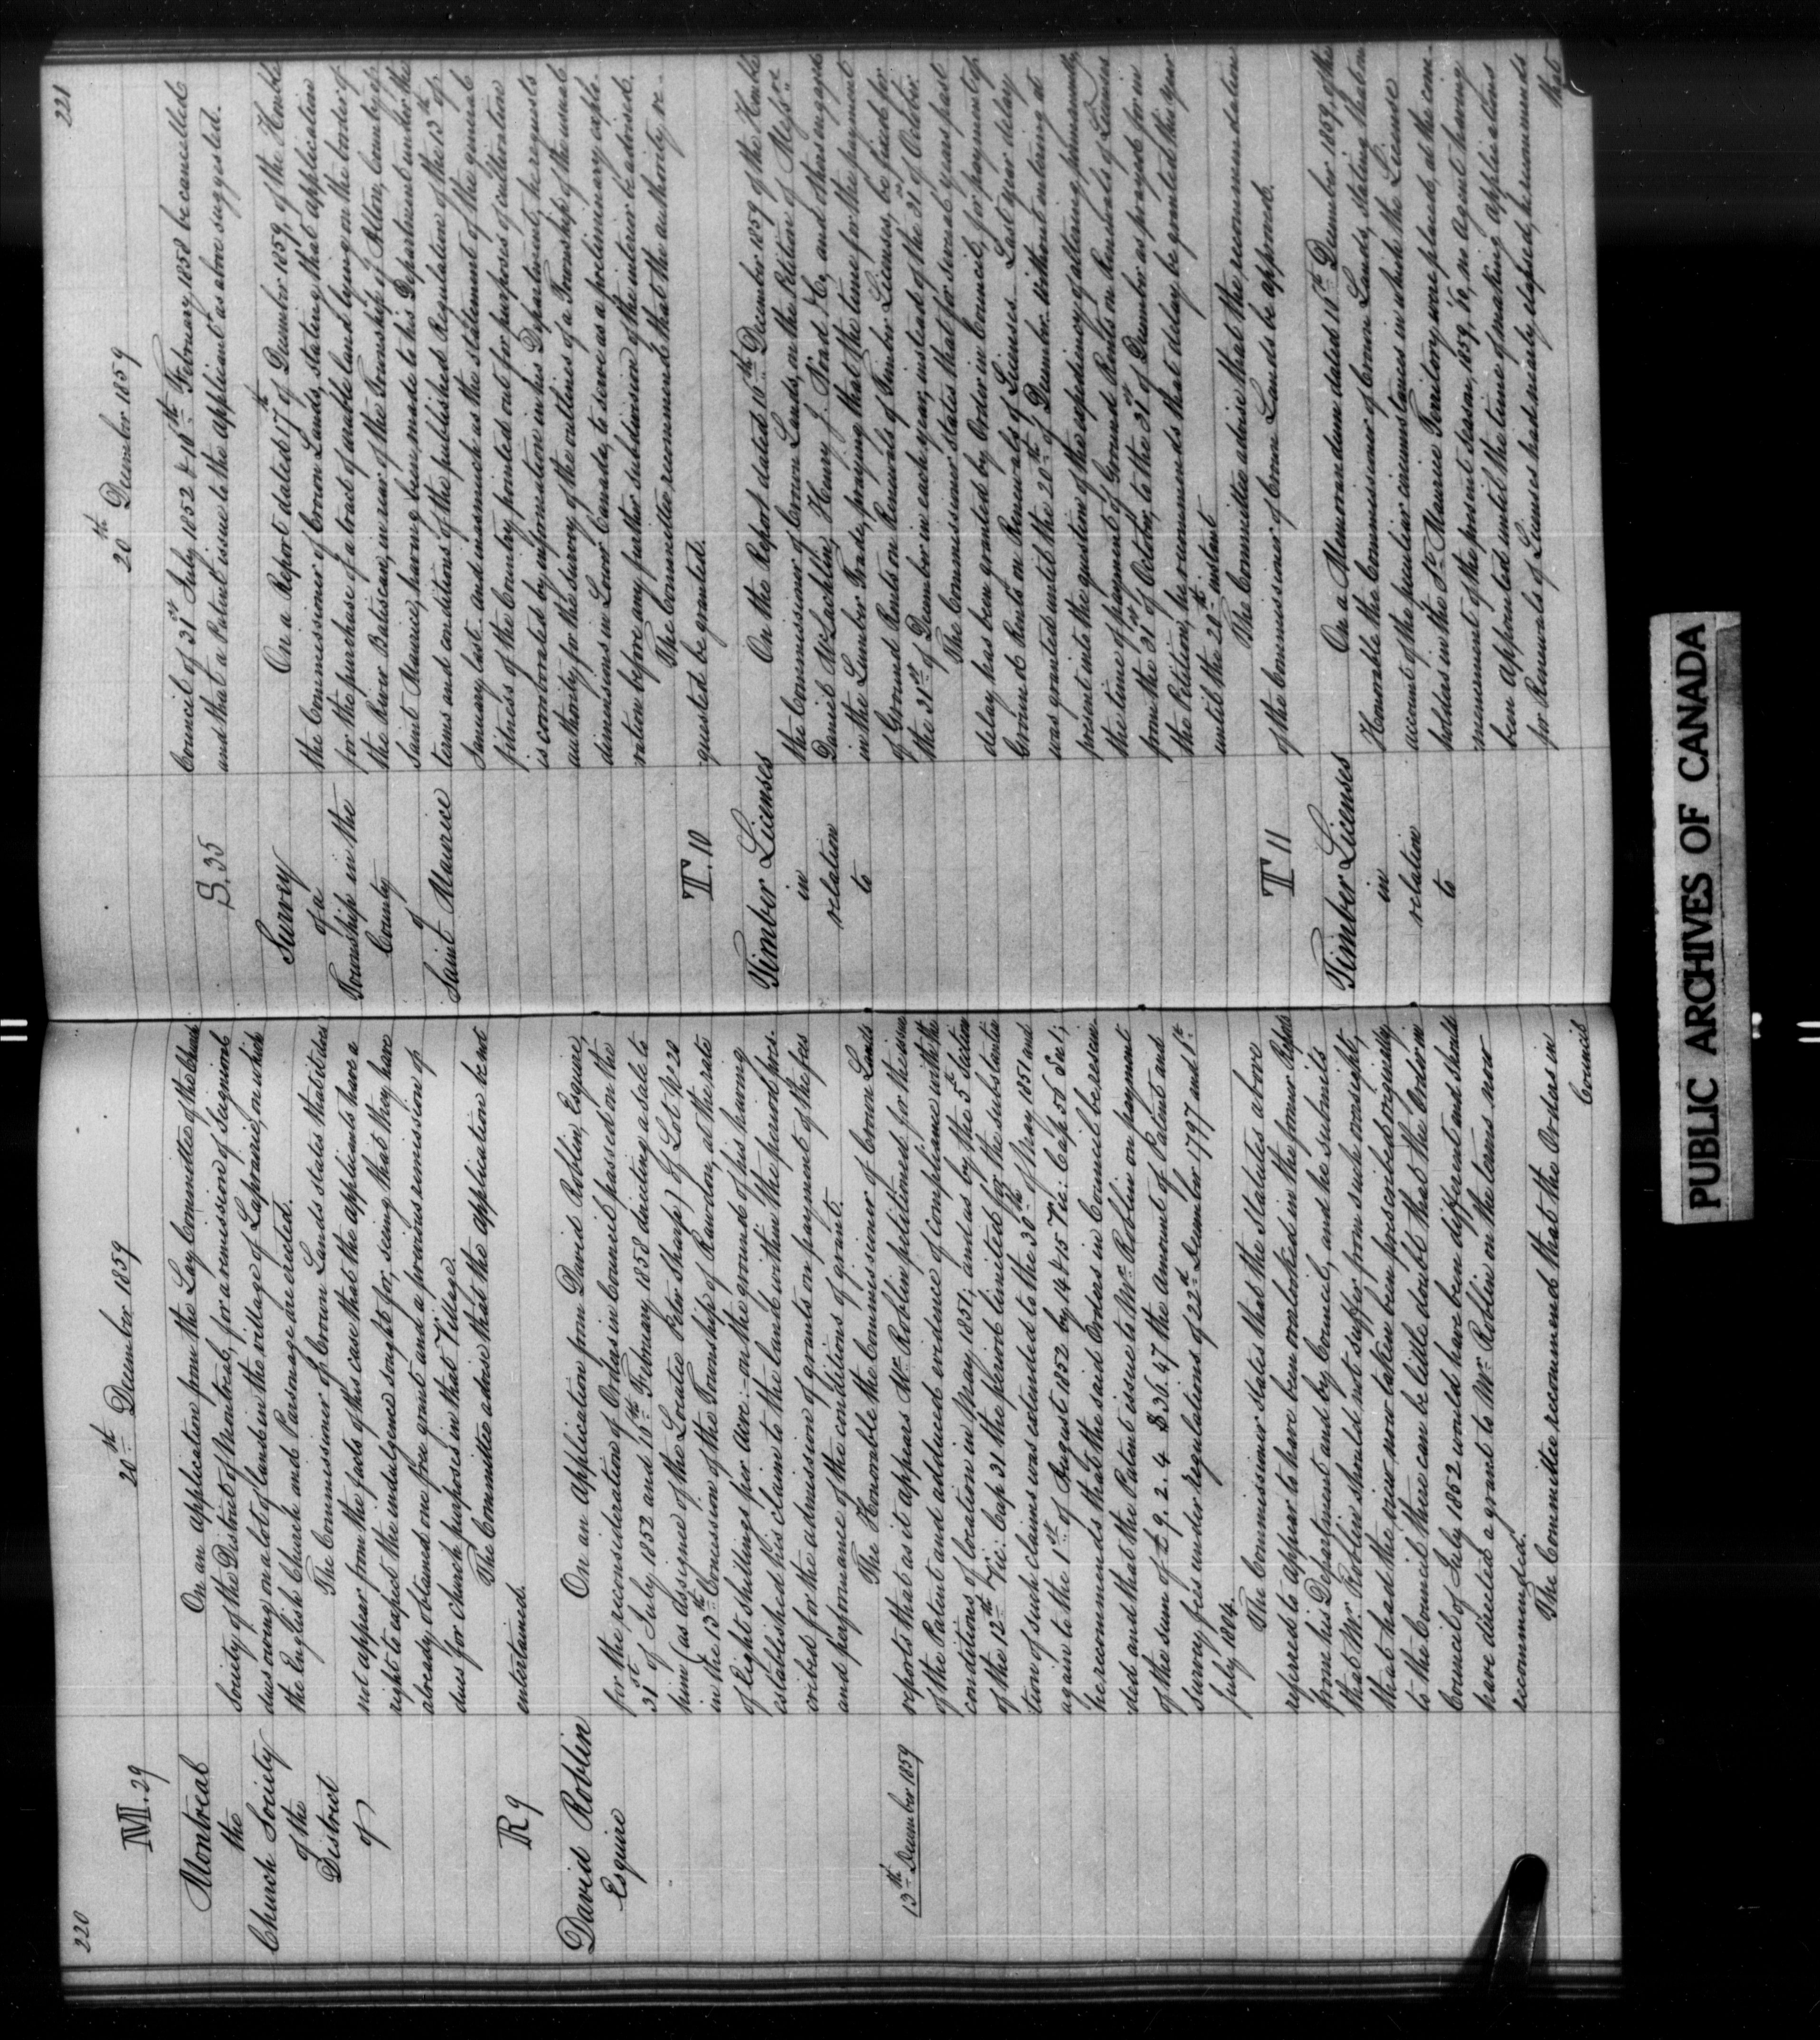 220
20th December 1859
M. 29
Montreal
the
Church Society
of the
District
of
On an application from the Lay Committee of the Church
Society of the District of Montreal, for a remission of Seigniorial
dues owing on a lot of land in the village of Laprairie, on which
the English Church and Parsonage are erected.
The Commissioner of Crown Lands states that it does
not appear from the facts of this case that the applicants have a
right to expect the indulgence sought for, seeing that they have
already obtained one free grant and a previous remission of
dues for church purposes in that Village.
The Committee advise that the application be not
entertained.
R 9
David Roblin
Esquire
On an Application from David Roblin, Esquire,
for the reconsideration of Orders in Council passed on the
31st of July 1852 and 10th February 1858 directing a sale to
him (as assignee of the Locatee Peter Sharp) of Lot No 20
in the 13th Concession of the Township of Rawdon, at the rate
of Eight shillings per Acre:—on the ground of his having
established his claim to the land within the period pres-
cribed for the admission of grants on payment of the fees
and performance of the conditions of grant.
13th December 1859
The Honorable the Commissioner of Crown Lands
reports that as it appears Mr. Roblin petitioned for the issue
of the Patent and adduced evidence of compliance with the
conditions of location in May 1851, and as by the 5th Section
of the 12th Vic: Cap 31 the period limited for the substantia
tion of such claims was extended to the 30th of May 1851 and
again to the 1st of August 1852 by 14 & 15 Vic: Cap 56 Sec 1;
he recommends that the said Orders in Council be rescin-
ded and that the Patent issue to Mr. Roblin on payment
of the sum of £9. 2. 4 $36.47 the amount of Patent and
Survey fees under regulations of 22nd December 1797 and 1st
July 1804.
The Commissioner states that the Statutes above
referred to appear to have been overlooked in the former Reports
from his Department and by Council, and he submits
that Mr. Roblin should not suffer from such oversight,
that had the view now taken been proscribed originally
to the Council there can be little doubt that the Order in
Council of July 1852 would have been different and should
have directed a grant to Mr. Roblin on the terms now
recommended.
The Committee recommend that the Orders in
Council
221
20th December 1859
Council of 31st July 1852 & 10th February 1858 be cancelled
and that a Patent issue to the applicant as above suggested.
S. 35
Survey
of a
Township in the
County
of
Saint Maurice
On a Report dated 17th of December 1859, of the Honble
the Commissioner of Crown Lands, stating that application
for the purchase of a tract of arable land lying on the border of
the River Batiscan, in rear of the Township of Alton, County of
Saint Maurice, having been made to his Department under the
terms and conditions of the published Regulation of the 13th of
January last. and inasmuch as the statement of the general
fitness of the Country pointed out for purposes of cultivation
is corroborated by information in his Department, he requests
authority for the survey of the outlines of a Township of the usual
dimensions in Lower Canada, to serve as a preliminary explo-
ration before any further subdivision of the interior be advised.
The Committee recommend that the authority re-
quested be granted.
T. 10
Timber Licenses
in
relation
to
On the Report dated 16th December 1859 of the Honble
the Commissioner of Crown Lands, on the Petition of Messrs
Daniel McLachlin, Henry J. Noad & Co, and others engaged
in the Lumber Trade, praying that the time for the payment
of Ground Rents on Renewals of Timber Licenses, be fixed for
the 31st of December in each year, instead of the 31st of October.
The Commissioner states that for several years past
delay has been granted by Order in Council, for payment of
Ground Rents on Renewals of Licenses.—Last year delay
was granted until the 20th of December. Without entering at
present into the question of the expediency of altering, permanently
the time of payment of Ground Rents on Renewals of Licenses
from the 31st of October, to the 31st of December as prayed for in
the Petition, he recommends that delay be granted this year
until the 28th instant.
The Committee advise that the recommendation
of the Commissioner of Crown Lands be approved.
T 11
Timber Licenses
in
relation
to
On a Memorandum dated 16th December 1859, of the
Honorable the Commissioner of Crown Lands, stating that on
account of the peculiar circumstances in which the License
holders in the St. Maurice Territory were placed, at the com-
mencement of the present season, 1859/60, no Agent having
been appointed until the time of making applications
for Renewals of Licenses had nearly elapsed, he recommends
that
PUBLIC ARCHIVES OF CANADA